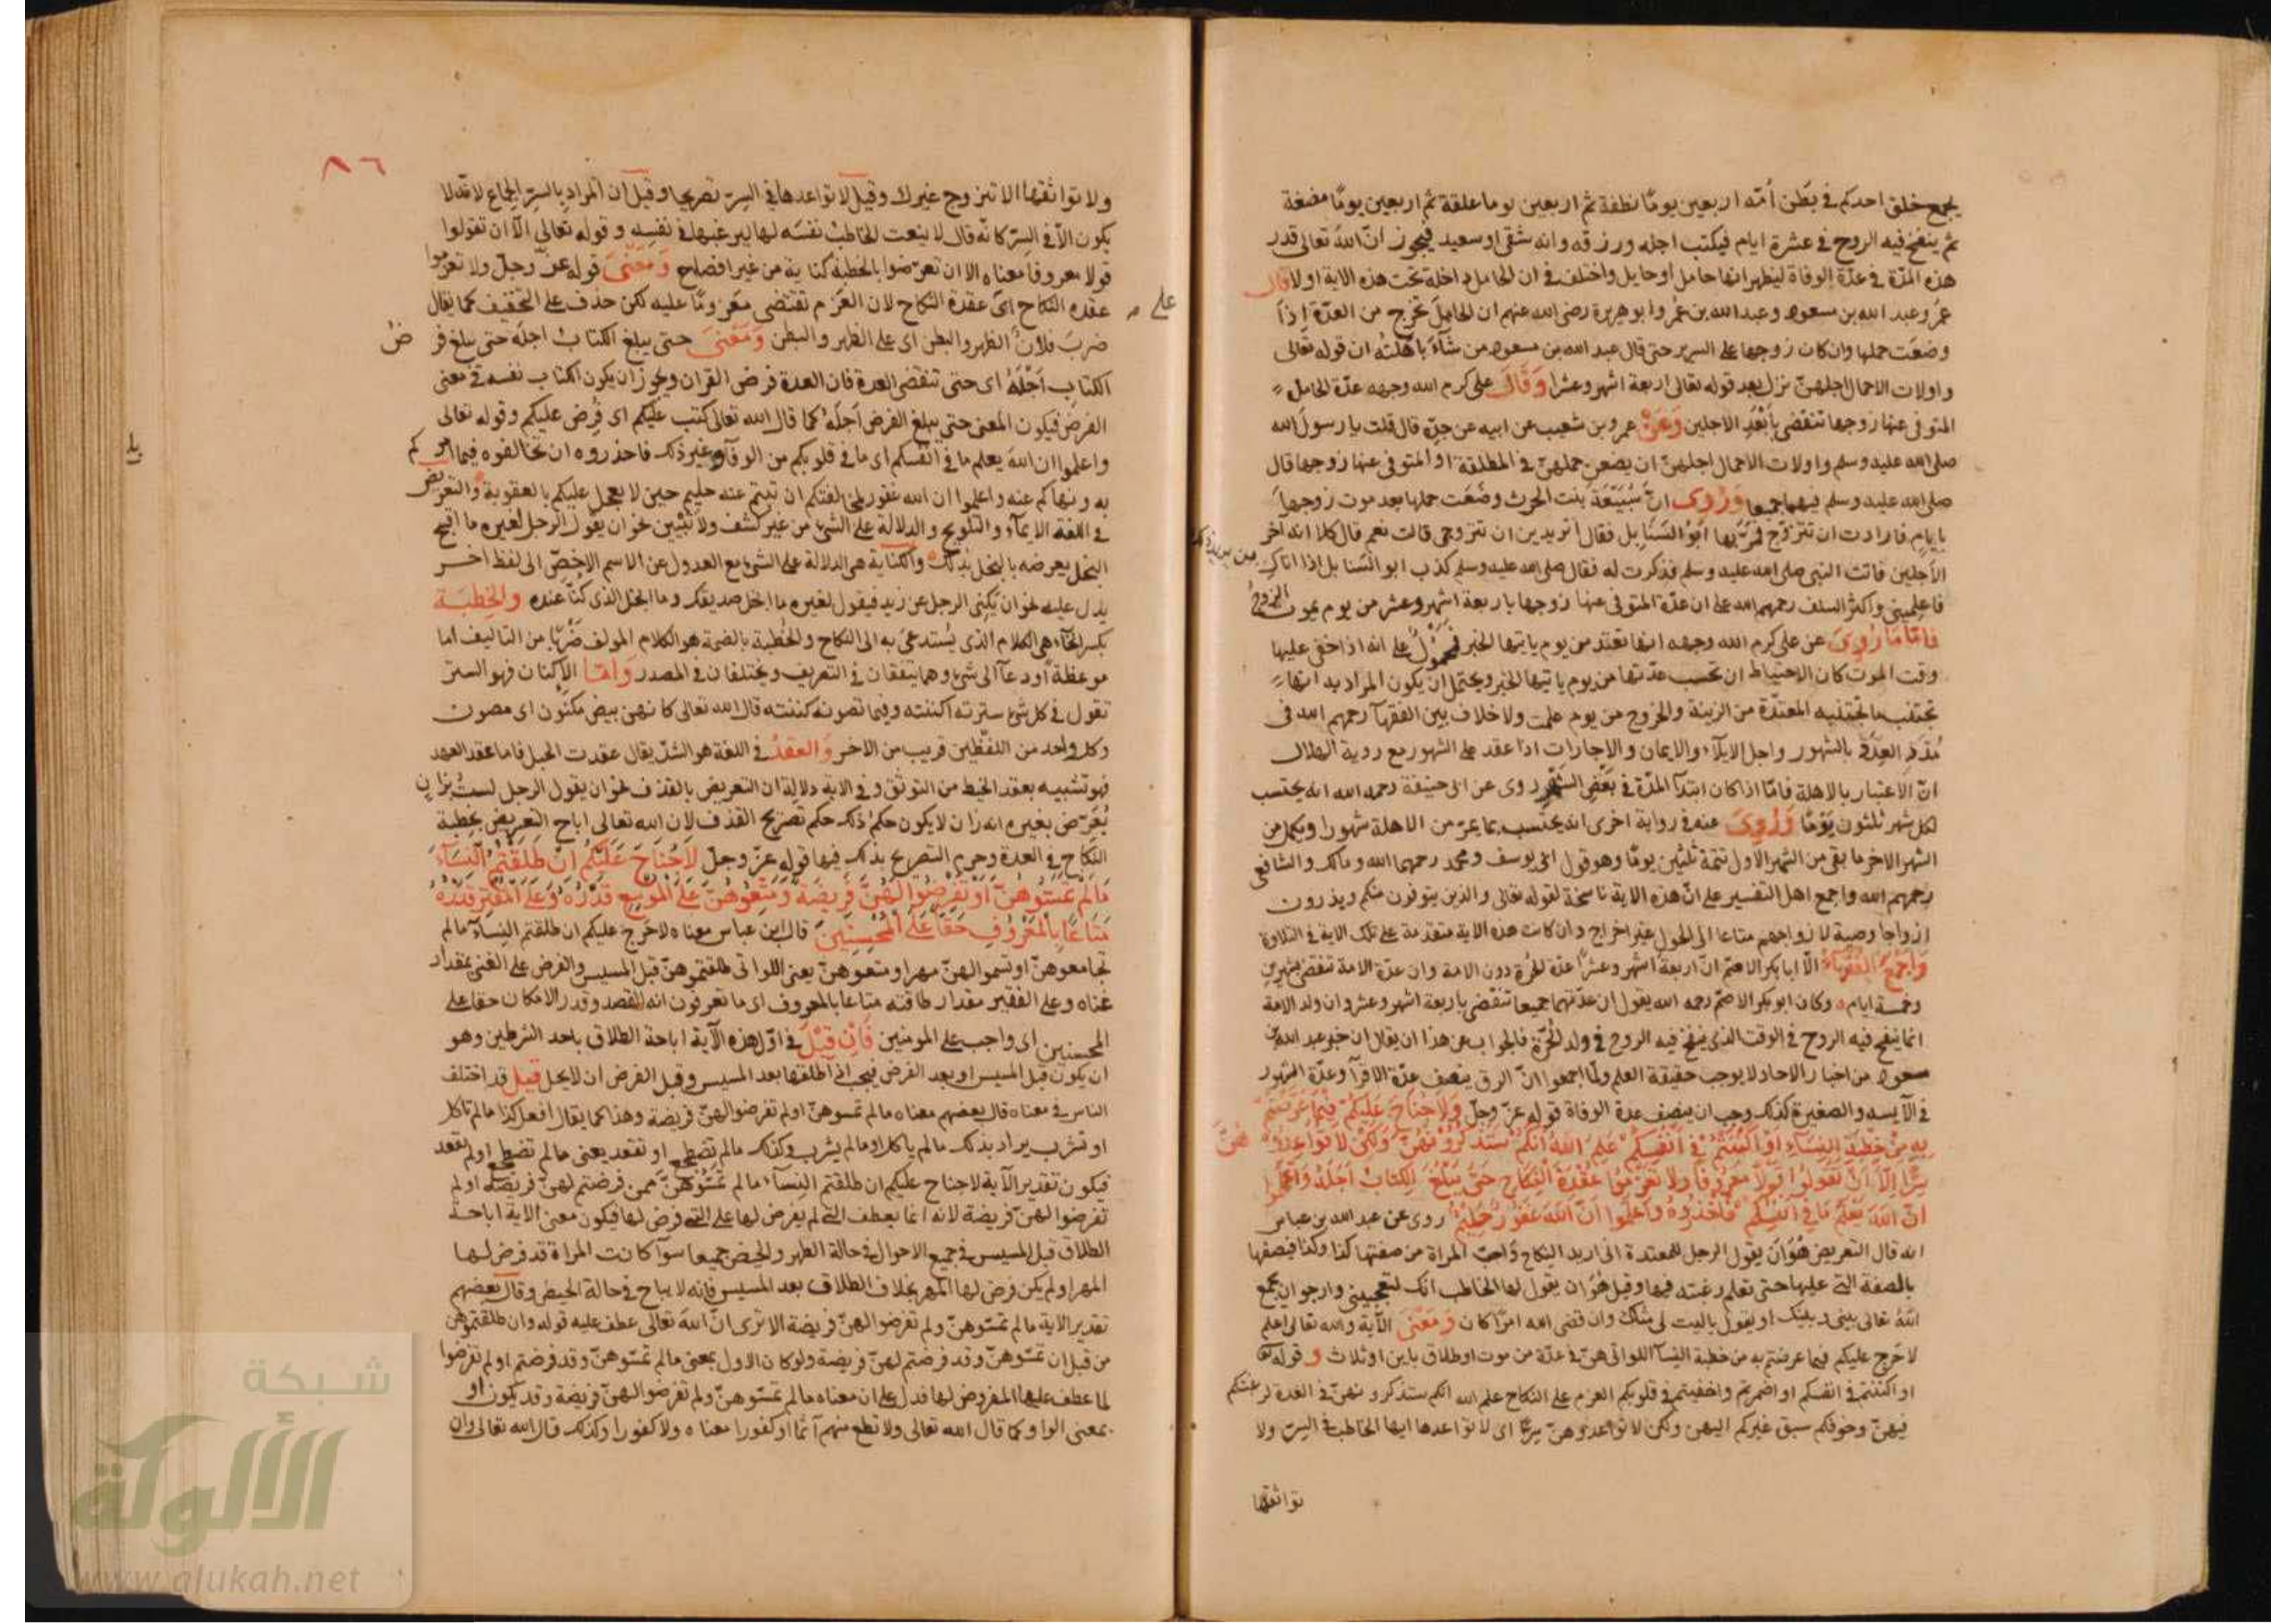 يجمع خلق احدكم في بطن أمّه اربعين يومًا نطفة ثم اربعين يوما علقة ثم اربعين يومًا مضغة
ثم ينفخ فيه الروح في عشرة ايام فيكتب اجله ورزقه وانه شقي او سعيد فيجوز انّ الله تعالى قدر
هذه المدّة في عدّة الوفاة ليظهر انها حامل او حايل واختلف في ان الحامل داخلة تحت هذه الاية او لا قال
عمر وعبد الله بن مسعود وعبد الله بن عمر وابو هريرة رضى الله عنهم ان الحامل تخرج من العدّة اذا
وضعت حملها وان كان زوجها على السرير حتى قال عبد الله بن مسعود من شآء باهلته ان قوله تعالى
واولات الاحمال اجلهنّ نزل بعد قوله تعالى اربعة اشهر وعشرا وقال على كرم الله وجهه عدّة الحامل
المتوفى عنها زوجها تنقضى بأبعد الاجلين وعن عمرو بن شعيب عن ابيه عن جدّه قال قلت يا رسول الله
صلى الله عليه وسلم واولات الاحمال اجلهنّ ان يضعن حملهنّ في المطلقة او المتوفى عنها زوجها قال
صلى الله عليه وسلم فيهما جميعا وروى انّ سُبَيْعَة بنت الحرث وضعت حملها بعد موت زوجها
بايام فارادت ان تتزوّج فمرّ بها ابو السنابل فقال أتريدين ان تتزوجى قالت نعم قال كلا انه آخر
الأجلين فاتت النبى صلى الله عليه وسلم فذكرت له فقال صلى الله عليه وسلم كذب ابو السنابل اذا اتاكِ من يريدك
فاعلمينى واكثر السلف رحمهم الله على ان عدّة المتوفى عنها زوجها باربعة اشهر وعشر من يوم يموت الزوج
فامّا ما رُوِىَ عن على كرم الله وجهه انها تعتد من يوم ياتيها الخبر فمحمولٌ على انه اذا خفى عليها
وقت الموت كان الاحتياط ان تحسب عدّتها من يوم ياتيها الخبر ويحتمل ان يكون المراد به انها
تجتنب ما تجتنبه المعتدّة من الزينة والخروج من يوم علمت ولا خلاف بين الفقهآء رحمهم الله في
مُدَدِ العِدَّة بالشهور واجل الايلآء والايمان والاجارات اذا عقد على الشهور مع روية الهلال
انّ الاعتبار بالاهلة فامّا اذا كان ابتدآء المدّة في بعض الشهر روى عن ابى حنيفة رحمه الله انه يحتسب
لكل شهر ثلثون يومًا وروى عنه في رواية اخرى انه يحتسب بما يمرّ من الاهلة شهورا ويكمل من
الشهر الاخر ما بقى من الشهر الاول تتمة ثلثين يومًا وهو قول ابى يوسف ومحمد رحمهما الله ومالك والشافعى
رحمهم الله واجمع اهل التفسير على انّ هذه الاية ناسخة لقوله تعالى والذين يتوفون منكم ويذرون
ازواجا وصية لازواجهم متاعا الى الحول غير اخراج وان كانت هذه الاية متقدمة على تلك الاية في التلاوة
واجمع الفقهآء الّا ابا بكر الاصمّ انّ اربعة اشهر وعشرًا عدّة للحُرّة دون الامة وان عدّة الامة تنقضى بشهرين
وخمسة ايام وكان ابو بكر الاصمّ رحمه الله يقول ان عدّتهما جميعا تنقضى باربعة اشهر وعشر وان ولد الامة
انما ينفخ فيه الروح في الوقت الذى ينفخ فيه الروح في ولد الحُرّة فالجواب عن هذا ان يقال ان خبر عبد الله بن
مسعود من اخبار الآحاد لا يوجب حقيقة العلم ولمّا اجمعوا انّ الرق ينصف عدّة الاقرآء وعدّة الشهور
في الآيسة والصغيرة كذلك وجب ان ينصف عدة الوفاة قوله عزّ وجلّ وَلَا جُنَاحَ عَلَيْكُمْ فِيمَا عَرَّضْتُمْ
بِهِ مِنْ خِطْبَةِ النِّسَاءِ اَوْ اَكْنَنْتُمْ فِى اَنْفُسِكُمْ عَلِمَ اللهُ اَنَّكُمْ سَتَذْكُرُونَهُنَّ وَلٰكِنْ لَا تُوَاعِدُوهُنَّ
سِرًّا اِلَّا اَنْ تَقُولُوا قَوْلًا مَعْرُوفًا وَلَا تَعْزِمُوا عُقْدَةَ النِّكَاحِ حَتَّى يَبْلُغَ الْكِتَابُ اَجَلَهُ وَاعْلَمُوا
اَنَّ اللهَ يَعْلَمُ مَا فِى اَنْفُسِكُمْ فَاحْذَرُوهُ وَاعْلَمُوا اَنَّ اللهَ غَفُورٌ حَلِيمٌ روى عن عبد الله بن عباس
انه قال التعريض هُوَ اَن يقول الرجل للمعتدة انى اريد النكاح وأحبّ المراة من صفتها كذا وكذا فيصفها
بالصفة التى عليها حتى تعلم رغبته فيها وقيل هُوَ ان يقول لها الخاطب انك لتعجبينى وارجو ان يجمع
اللهُ تعالى بينى وبينك او يقول ياليت لى مثلك وان قضى الله امرًا كان وَمَعْنَى الآية والله تعالى اعلم
لا حرج عليكم فيما عرضتم به من خطبة النسآء اللواتى هنّ في عدّة من موت او طلاق باين او ثلاث وقوله
او اكننتم في انفسكم او اضمرتم واخفيتم في قلوبكم العزم على النكاح علم الله انكم ستذكرونهنّ في العدة لرغبتكم
فيهنّ وخوفكم سبق غيركم اليهن ولكن لا تواعدوهنّ سِرًّا اى لا تواعدها ايها الخاطب في السر ولا
تواثقها
٨٦
ولا تواثقها الا تتزوج غيرك وقيل لا تواعدها في السِرّ تصريحا وقيل ان المراد بالسِرّ الجماع لانّه لا
يكون الّا في السِرّ كانّه قال لا ينعت الخاطب نفسَه لها ليرغبها في نفسه وقوله تعالى الّا ان تقولوا
قولا معروفا معناه الا ان تعرّضوا بالخطبة كناية من غير افصاح وَمَعْنَى قوله عزّ وجلّ ولا تعزموا
عقده النكاح اىْ على عقدة النكاح لان العَزم تقتضى معزومًا عليه لكن حذف على التخفيف كما يقال
ضربَ فلانٌ الظهر والبطن اى على الظهر والبطن وَمَعْنَى حتى يبلغ الكتاب اجله حتى يبلغ فرض
الكتاب اَجَلَهُ اى حتى تنقضى العدة فان العدة فرض القران ويجوز ان يكون الكتاب نفسه في معنى
الفرض فيكون المعنى حتى يبلغ الفرض أجلهُ كما قال الله تعالى كتب عليكم اى فُرِض عليكم وقوله تعالى
واعلموا ان اللهَ يعلم ما في انفسكم اى ما في قلوبكم من الوفآء وغير ذلك فاحذروه ان تخالفوه فيما امركم
به ونهاكم عنه واعلموا ان الله غفور لمخالفتكم ان تبتم عنه حليم حين لا يعجل عليكم بالعقوبة والتعريض
في اللغة الايمآء والتلويح والدلالة على الشئ من غير كشف ولا تبيين نحو ان يقول الرجل لغيره ما اقبح
البخل يعرضه بالبخل بذلك والكناية هى الدلالة على الشئ مع العدول عن الاسم الاخصّ الى لفظ اخر
يدل عليه نحو ان يَكْنِى الرجل عن زيد فيقول لغيره ما ابخل صديقك وما ابخل الذى كُنّا عنده والخِطبَة
بكسر الخآء هى الكلام الذى يُستدعى به الى النكاح والخُطبة بالضمة هو الكلام المولف ضَرْبًا من التاليف اما
موعظةً أو دعآءً الى شئ وهما يتفقان في التعريف ويختلفان في المصدر وامّا الإكنان فهو الستر
تقول في كل شئ سترته اكننته وفيما تصونه كننته قال الله تعالى كانهنّ بيض مكنون اى مصون
وكل واحد من اللفظين قريب من الاخر وَالعقدُ في اللغة هو الشدّ يقال عقدت الحبل فاما عقد العهد
فهو تشبيه بعقد الخيط من التوثق وفي الاية دلالة ان التعريض بالقذف نحو ان يقول الرجل لستُ بزانٍ
يُعَرِّض بغيره انه زان لا يكون حكمُ ذلك حكم تصريح القذف لان الله تعالى اباح التعريض بخطبة
النكاح في العدة وحرم التصريح بذلك فيها قوله عزّ وجلّ لَا جُنَاحَ عَلَيْكُمْ اِنْ طَلَّقْتُمُ النِّسَآءَ
مَالَمْ تَمَسُّوهُنَّ اَوْ تَفْرِضُوا لَهُنَّ فَرِيضَةً وَمَتِّعُوهُنَّ عَلَى الْمُوسِعِ قَدَرُهُ وَعَلَى الْمُقْتِرِ قَدَرُهُ
مَتَاعًا بِالْمَعْرُوفِ حَقًّا عَلَى الْمُحْسِنِينَ قال ابن عباس معناه لا حَرَج عليكم ان طلقتم النِسآء مالم
تجامعوهنّ او تسموا لهنّ مهرا ومتعوهنّ يعنى اللواتى طلقتموهنّ قبل المسيس والفرض على الغنى بمقدار
غناه وعلى الفقير مقدار طاقته متاعا بالمعروف اى ما تعرفون انه القصد وقدر الامكان حقا على
المحسنين اى واجب على المومنين فَاِن قِيْلَ في اوّل هذه الآية اباحة الطلاق باحد الشرطين وهو
ان يكون قبل المسيس او بعد الفرض فيجب اذا طلقها بعد المسيس وقبل الفرض ان لا يحل قيل قد اختلف
الناس في معناه قال بعضهم معناه مالم تمسوهنّ اولم تفرضوا لهنّ فريضة وهذا كما يقال افعل كذا مالم تاكل
او تشرب يراد بذلك مالم ياكل او مالم يشرب وكذلك مالم تضطجع او تقعد يعنى مالم تضطجع اولم تقعد
فيكون تقدير الآية لا جناح عليكم ان طلقتم النسآء مالم تمسُّوهُنّ ممن فرضتم لهنّ فريضة اولم
تفرضوا لهنّ فريضة لانه انما يعطف التى لم يفرض لها على التى فرض لها فيكون معنى الاية اباحة
الطلاق قبل المسيس في جميع الاحوال في حالة الطهر والحيض جميعا سوآء كانت المراة قد فرض لها
المهر او لم يكن فرض لها المهر بخلاف الطلاق بعد المسيس فانه لا يباح في حالة الحيض وقال بعضهم
تقدير الاية مالم تمسّوهنّ ولم تفرضوا لهنّ فريضة الا ترى انّ اللهَ تعالى عطف عليه قوله وان طلقتموهن
من قبل ان تمسّوهنّ وقد فرضتم لهنّ فريضة ولو كان الاول بمعنى مالم تمسّوهنّ وقد فرضتم اولم تفرضوا
لما عطف عليها المفروض لها فدل على ان معناه مالم تمسّوهنّ ولم تفرضوا لهنّ فريضة وقد يكون او
بمعنى الواو كما قال الله تعالى ولا تطع منهم آثما او كفورا معناه ولا كفورا وكذلك قال الله تعالى وان
شبكة
الألوكة
www.alukah.net